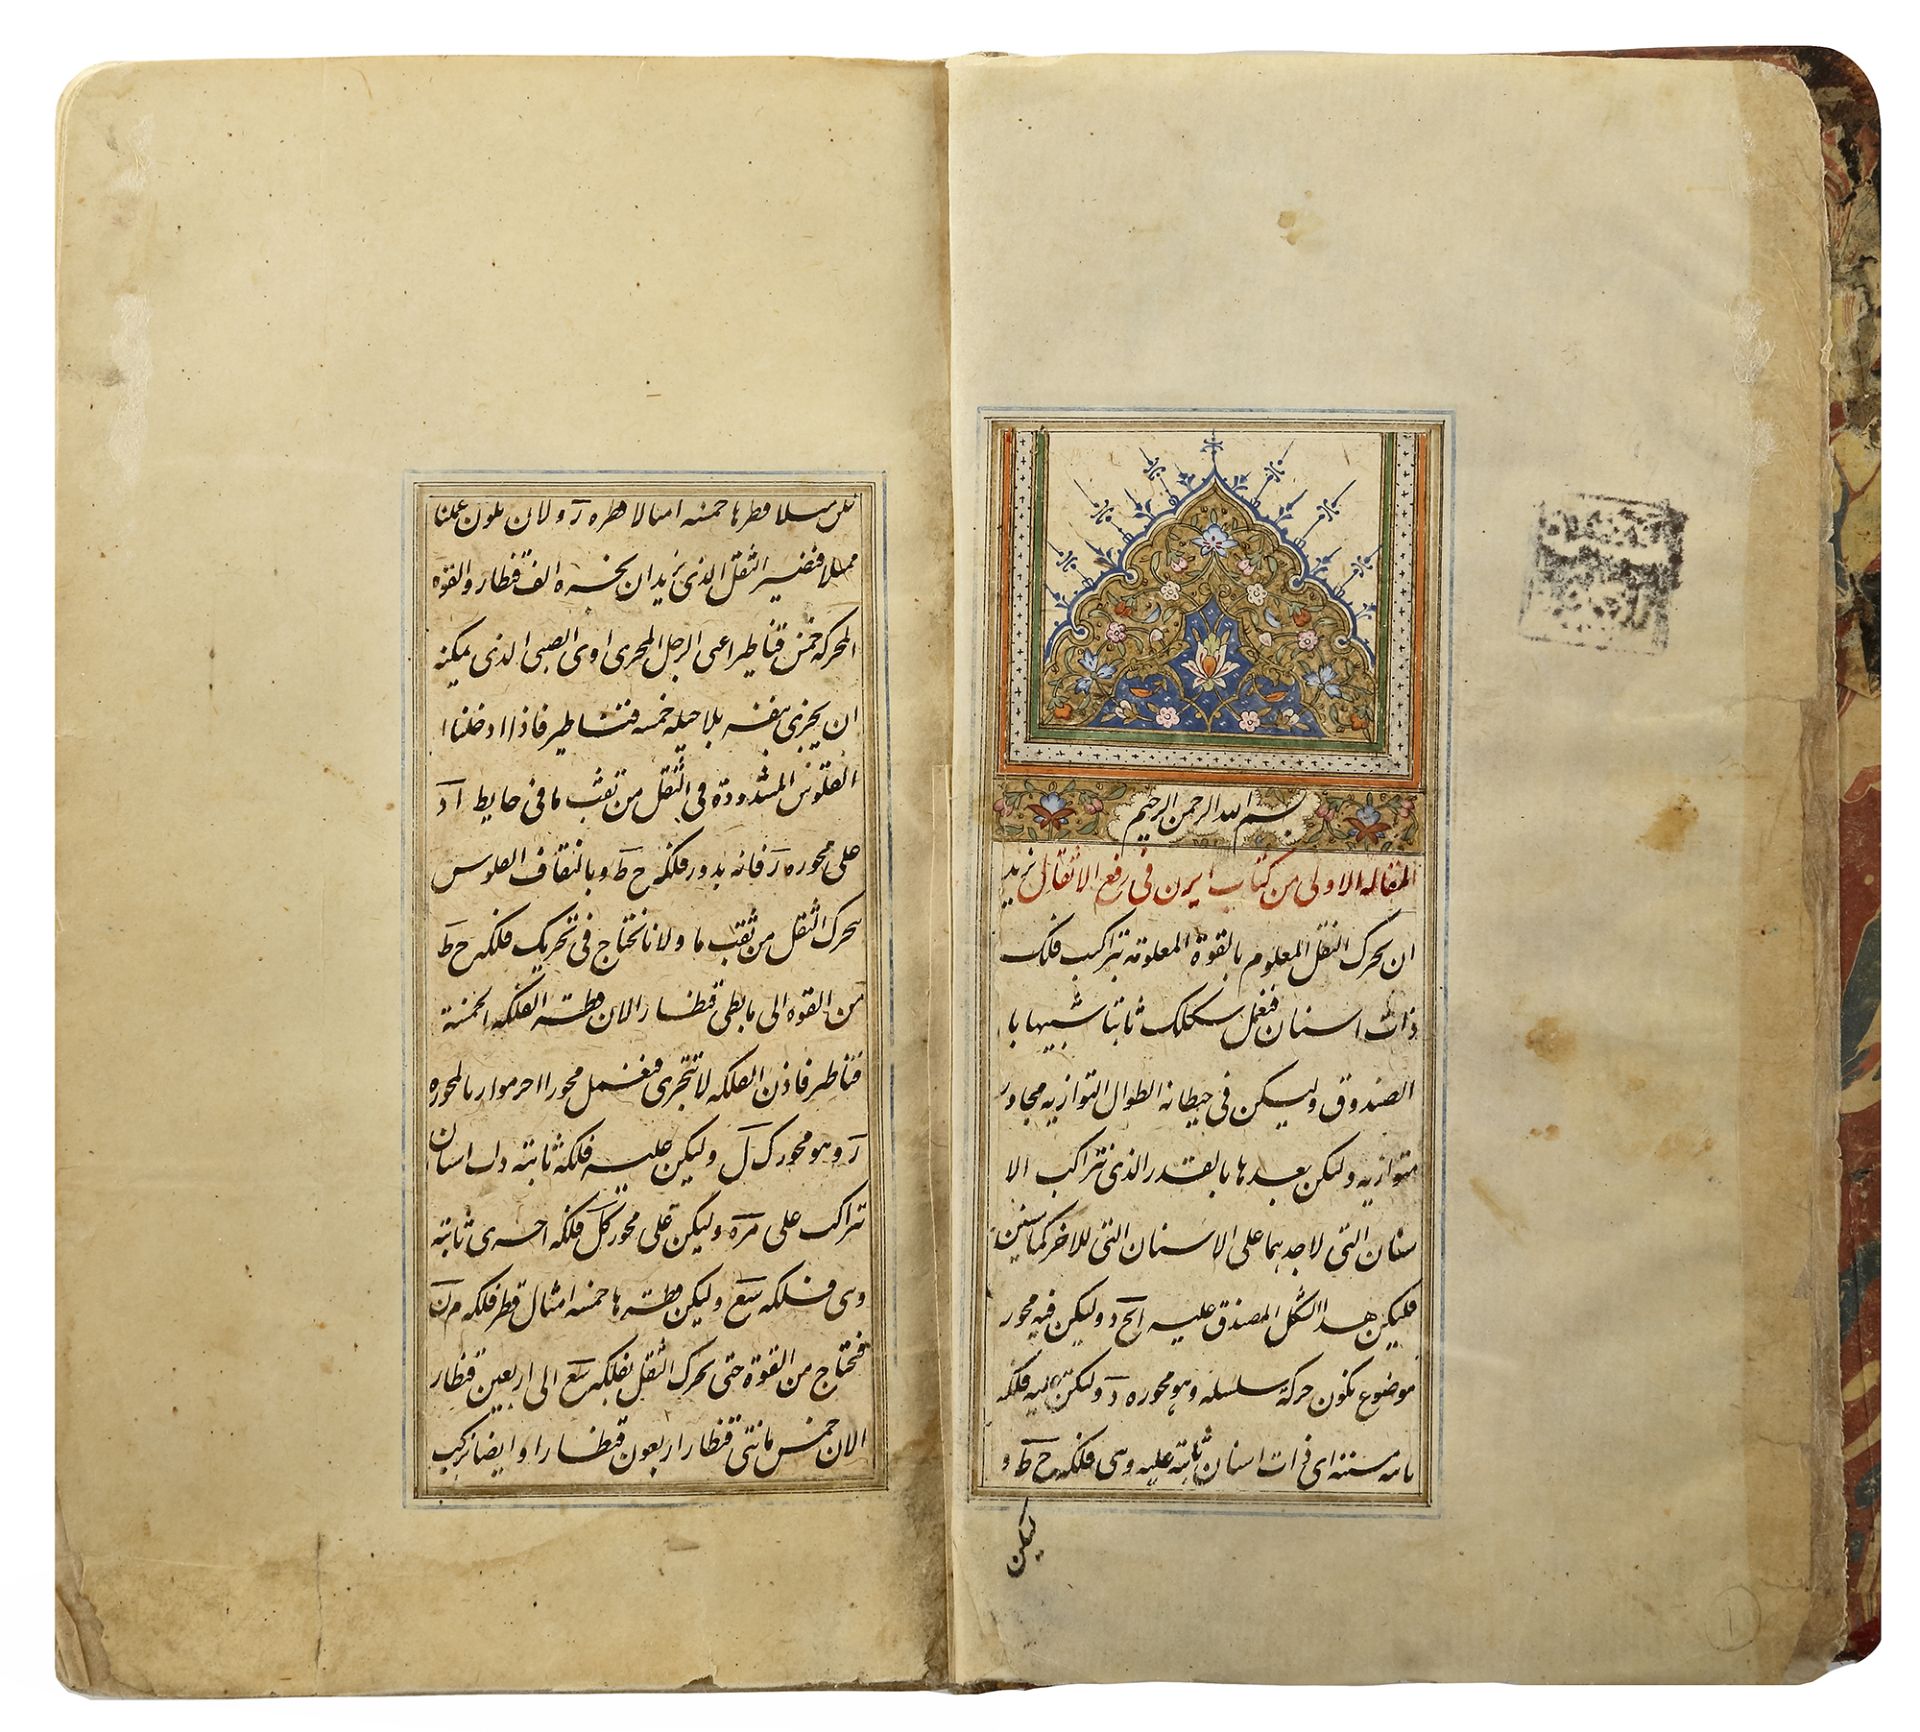 بسم الله الرحمن الرحيم
المقاله الاولى من كتاب ايرن فى رفع الاثقال نريد
ان نحرك الثقل المعلوم بالقوة المعلومه بتراكب فلك
ذات اسنان فنعمل شكلا ثابتا شبيها با
لصندوق وليكن فى حيطانه الطوال المتوازيه محاور
متوازيه وليكن بعدها بالقدر الذى تتراكب الا
سنان التى لاحدهما على الاسنان التى للاخر كما سنبين
فليكن هذا الشكل المصندق عليه ابجد وليكن فيه محور
موضوع يكون حركته سلسله وهو محوره وليكن عليه فلكه
ثابتة عليه وهى فلكه ح ط و
ليكن
مثلا قطرها خمسه امثال قطر ولان يكون عملنا
فنصير الثقل الذى نريد ان نجره الف قنطار والقوه
المحركه خمس قناطير اعنى الرجل المجرى او الصبى الذى يمكنه
ان يجرى بنفسه بلا حيله خمسه قناطير فاذا ادخلنا ا
لقلوس المشدودة فى الثقل من ثقب ما فى حايط اد
على محور فانه يدور فلكه ح ط وبالتفاف القلوس
يحرك الثقل من ثقب ما ولانا نحتاج فى تحريك فلكه ح ط
من القوه الى مايتى قنطار لان قطر الفلكه الخمسة
قناطير فاذن الفلكه لا تتحرى فنعمل محورا اخر موازيا لمحوره
وهو محور ك ل وليكن عليه فلكه ثابته ذات اسنان
تتراكب على وليكن على محور كل فلكه اخرى ثابته
وهى فلكه سع وليكن قطرها خمسه امثال قطر فلكه من
فنحتاج من القوة حتى نحرك الثقل بفلكه سع الى اربعين قنطار
لان خمس مائتى قنطار اربعون قنطارا وايضا نركب